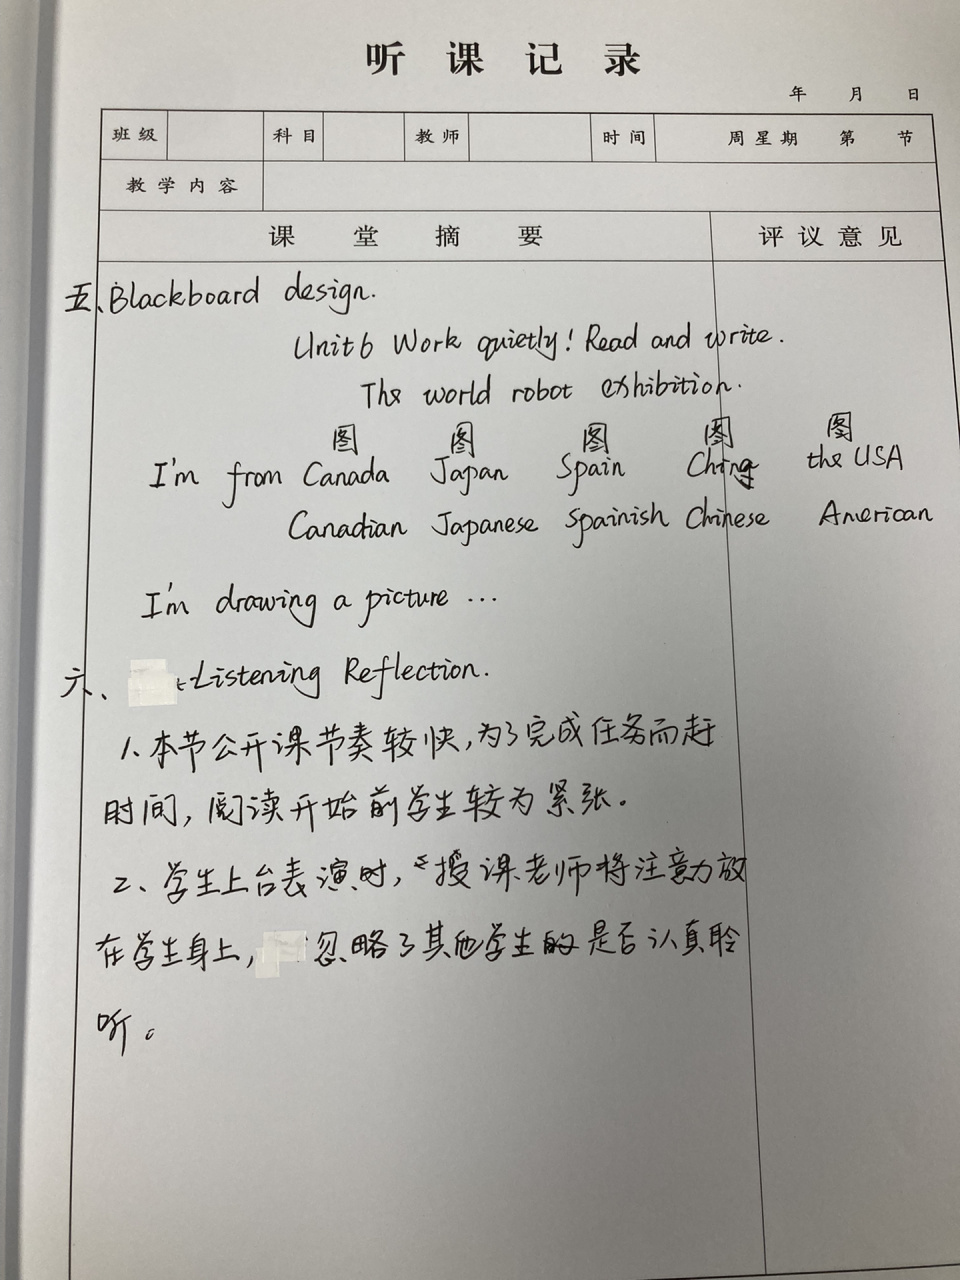 听课记录
年 月 日
班级 科目 教师 时间 周星期 第 节
教学内容
课堂摘要 评议意见
五、Blackboard design.
Unit6 Work quietly! Read and write.
The world robot exhibition.
图 图 图 图 图
I'm from Canada Japan Spain China the USA
Canadian Japanese Spainish Chinese American
I'm drawing a picture ...
六、Listening Reflection.
1、本节公开课节奏较快,为了完成任务而赶
时间,阅读开始前学生较为紧张。
2、学生上台表演时,授课老师将注意力放
在学生身上,忽略了其他学生的是否认真聆
听。